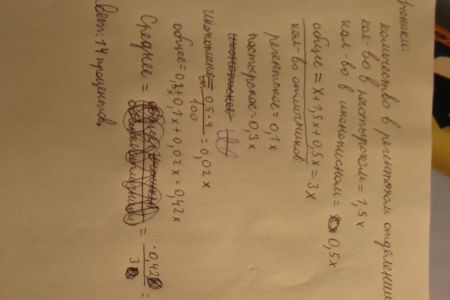 количество в регентском отделении
кол-во в пастырском = 1,5x
кол-во в иконописном = 0,5x
общее = x + 1,5x + 0,5x = 3x
кол-во отличников
регентское = 0,1x
пастырское = 0,3x
иконопись = 0,5·4/100 = 0,02x
общее = 0,3 + 0,1x + 0,02x = 0,42x
Среднее = = ·0,42/3 =
14 процентов